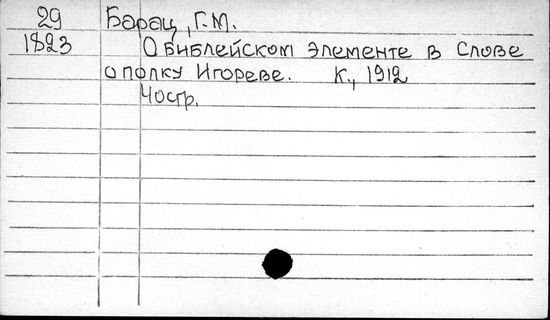 29 Барац, Г.М.
1823 О библейском элементе в Слове
о полку Игореве. К., 1912
40стр.